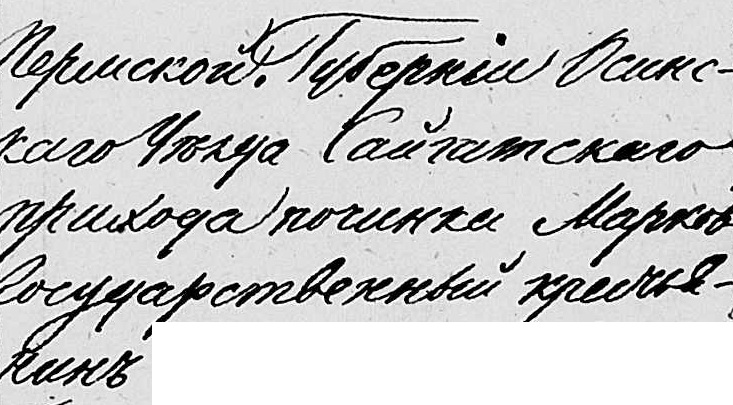 Пермской Губерніи Осинс-
каго Уѣзда Сайгатскаго
прихода починка Марков
Государственный кресья-
нинъ